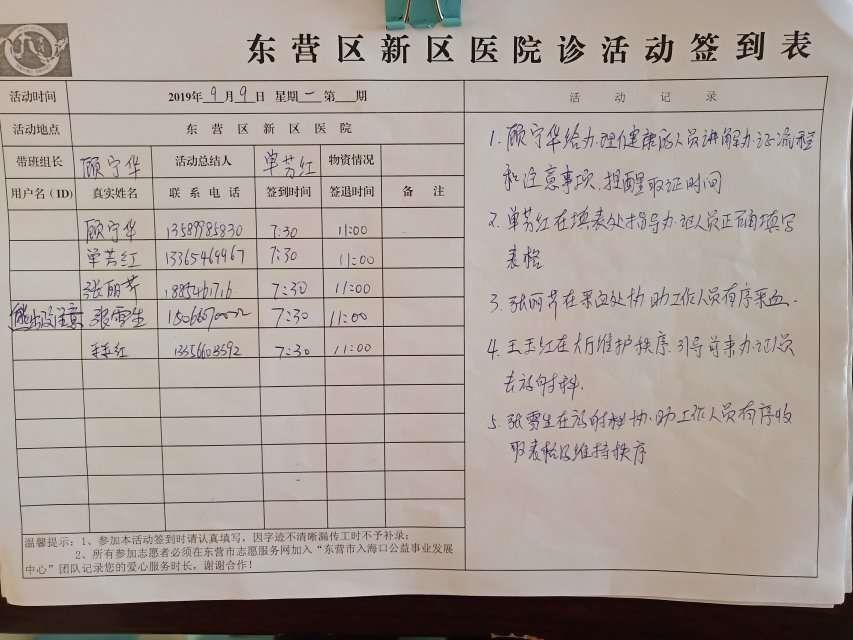 东营区新区医院诊活动签到表
活动时间 2019年 9 月 9 日 星期 一 第 期 活动记录
活动地点 东营区新区医院
带班组长 顾宁华 活动总结人 单芳红 物资情况
用户名(ID) 真实姓名 联系电话 签到时间 签退时间 备注
顾宁华 13589985830 7:30 11:00
单芳红 13365469967 7:30 11:00
张丽芹 7:30 11:00
张雪生 7:30 11:00
王玉红 7:30 11:00
1. 顾宁华给办理健康证人员讲解办证流程
和注意事项,提醒取证时间
2. 单芳红在填表处指导办证人员正确填写
表格
3. 张丽芹在采血处协助工作人员有序采血.
4. 王玉红在大厅维护秩序,引导前来办证人员
去放射科.
5. 张雪生在放射科协助工作人员有序收
取表格及维持秩序
温馨提示:1、参加本活动签到时请认真填写,因字迹不清晰漏传工时不予补录;
2、所有参加志愿者必须在东营市志愿服务网加入“东营市入海口公益事业发展
中心”团队记录您的爱心服务时长,谢谢合作!